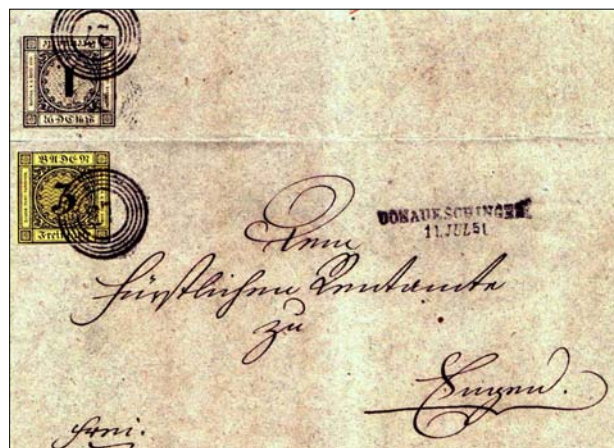 1
BADEN
3
DONAUESCHINGEN
11.JUL51
Dem
Fürstlichen Rentamte
zu
frei.